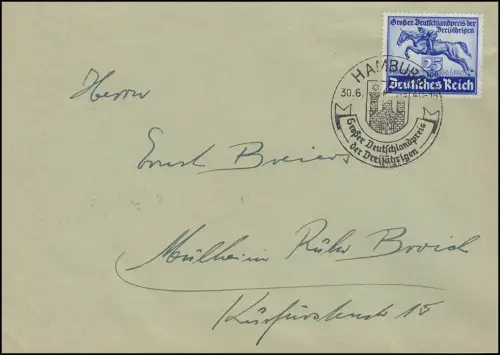 Großer Deutschlandpreis der
Dreijährigen
25
Deutsches Reich
HAMBURG
30.6.
Großer Deutschlandpreis
der Dreijährigen
Herrn
Ernst Breiers
Mülheim Ruhr Broich
Kurfürstenstr 15